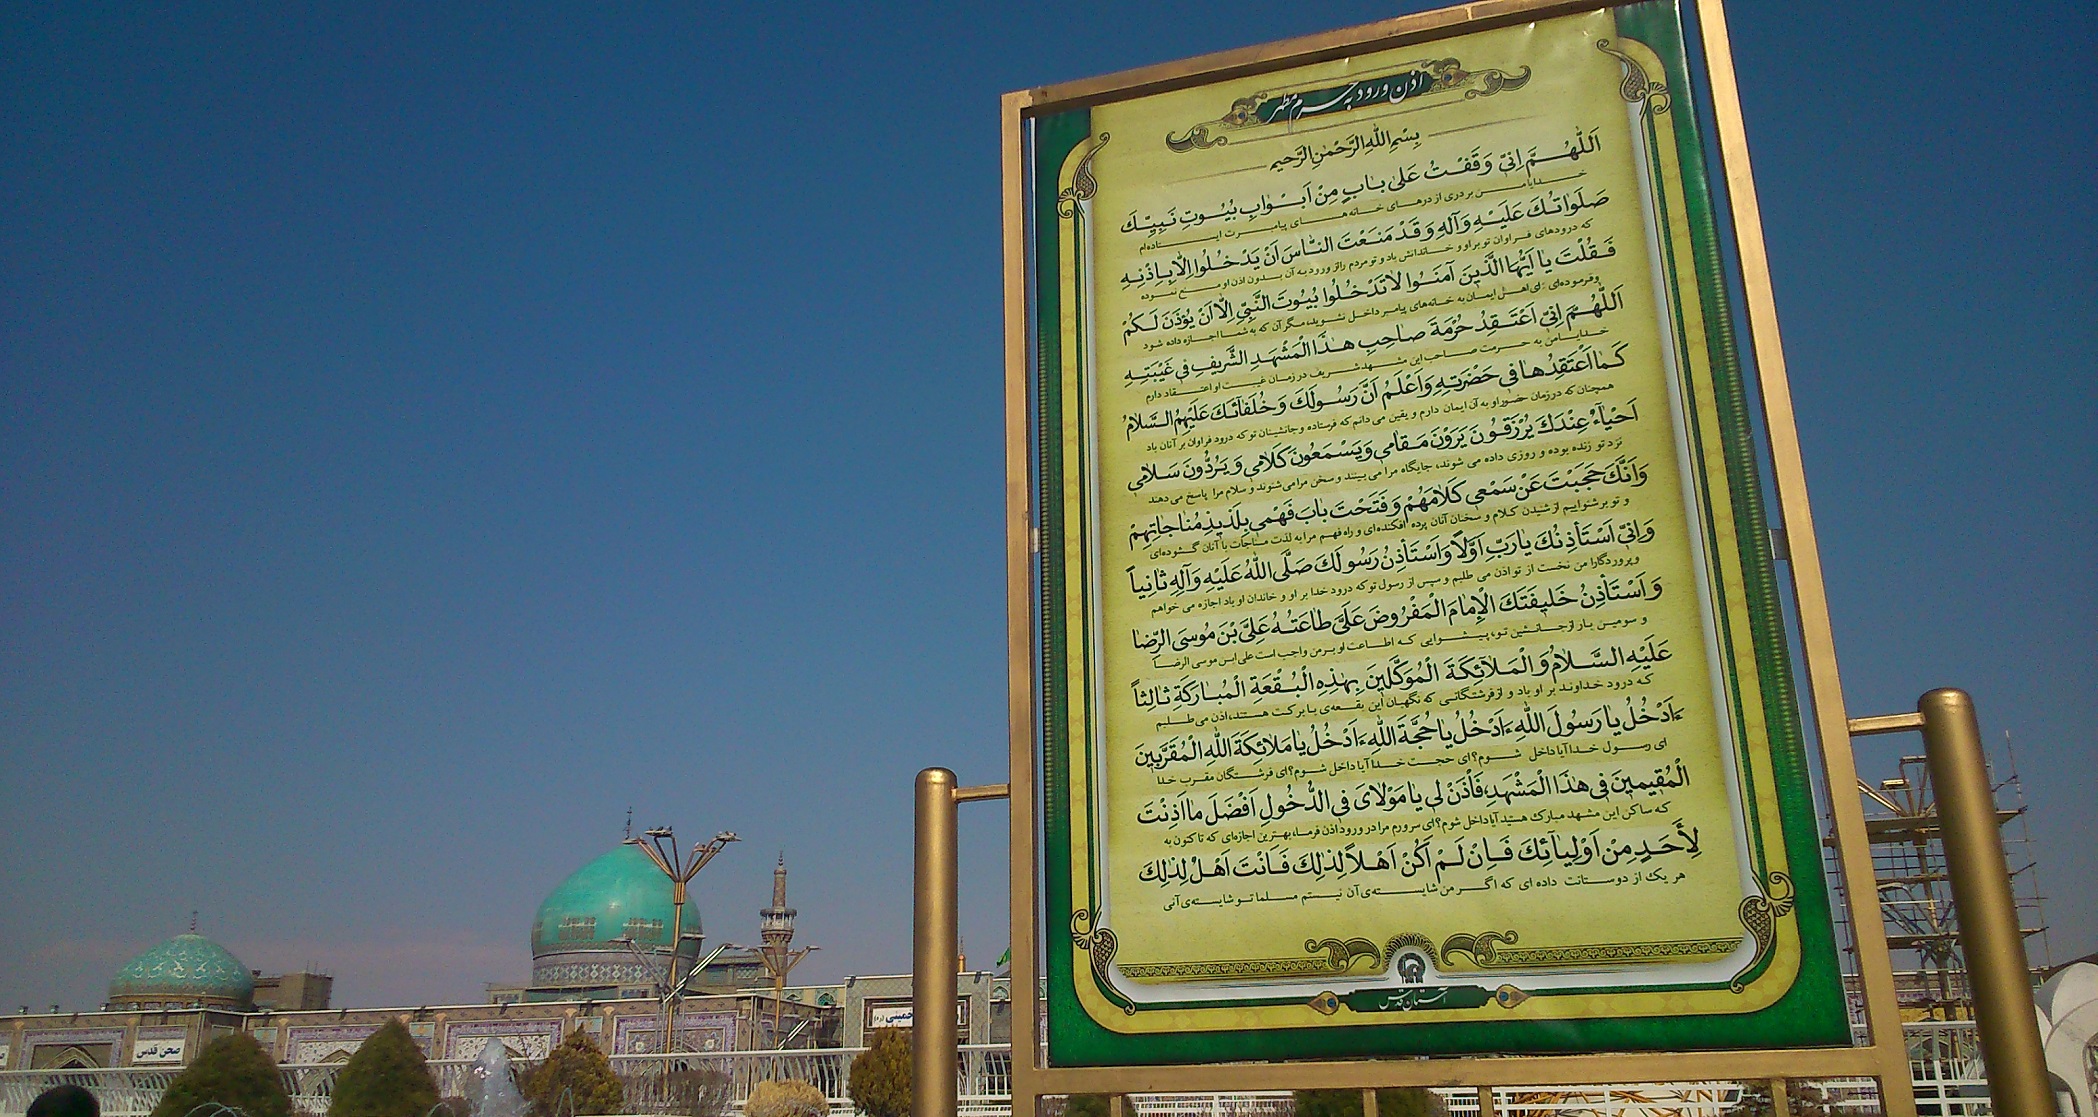 اذن ورود به حرم مطهر
بِسْمِ اللّٰهِ الرَّحْمٰنِ الرَّحیمِ
اَللّٰهُمَّ اِنّی وَقَفْتُ عَلیٰ بابٍ مِنْ اَبْوابِ بُیُوتِ نَبِیِّكَ
خدایا من بر دری از درهای خانه های پیامبرت ایستاده‌ام
صَلَواتُكَ عَلَیْهِ وَآلِهِ وَقَدْ مَنَعْتَ النّاسَ اَنْ یَدْخُلُوا اِلّا بِاِذْنِهِ
که درودهای فراوان تو بر او و خاندانش باد و تو مردم را از ورود به آن بدون اذن او منع نموده
فَقُلْتَ یا اَیُّهَا الَّذینَ آمَنُوا لاتَدْخُلُوا بُیُوتَ النَّبِیِّ اِلّا اَنْ یُؤْذَنَ لَكُمْ
وفرموده‌ای :ای اهل ایمان به خانه‌های پیامبر داخل نشوید، مگر آن که به شما اجازه داده شود
اَللّٰهُمَّ اِنّی اَعْتَقِدُ حُرْمَةَ صاحِبِ هٰذَا الْمَشْهَدِ الشَّریفِ فی غَیْبَتِهِ
خدایا من به حرمت صاحب این مشهد شریف در زمان غیبت او اعتقاد دارم
كَما اَعْتَقِدُها فی حَضْرَتِهِ وَاَعْلَمُ اَنَّ رَسُولَكَ وَ خُلَفائَكَ عَلَیْهِمُ السَّلامُ
همچنان که در زمان حضور او به آن ایمان دارم و یقین می دانم که فرستاده و جانشینان تو که درود فراوان بر آنان باد
اَحْیاءٌ عِنْدَكَ یُرْزَقُونَ یَرَوْنَ مَقامی وَیَسْمَعُونَ كَلامی وَ یَرُدُّونَ سَلامی
نزد تو زنده بوده و روزی داده می شوند، جایگاه مرا می بینند و سخن مرا می شنوند و سلام مرا پاسخ می دهند
وَاَنَّكَ حَجَبْتَ عَنْ سَمْعی كَلامَهُمْ وَ فَتَحْتَ بابَ فَهْمی بِلَذیذِ مُناجاتِهِمْ
و تو بر شنواییم از شنیدن کلام و سخنان آنان پرده افکنده‌ای و راه فهم مرا به لذت مناجات با آنان گشوده‌ای
وَاِنّی اَسْتَأْذِنُكَ یا رَبِّ اَوَّلاً وَاَسْتَأْذِنُ رَسُولَكَ صَلَّی اللّٰهُ عَلَیْهِ وَآلِهِ ثانِیاً
و پروردگارا من نخست از تو اذن می طلبم و سپس از رسول تو که درود خدا بر او و خاندان او باد اجازه می خواهم
وَ اَسْتَأْذِنُ خَلیفَتَكَ الْاِمامَ الْمَفْرُوضَ عَلَیَّ طاعَتُهُ عَلِیَّ بْنَ مُوسَی الرِّضا
و سومین بار از جانشین تو، پیشوایی که اطاعت او بر من واجب است علی ابن موسی الرضا
عَلَیْهِ السَّلامُ وَ الْمَلائِكَةَ الْمُوَكَّلینَ بِهٰذِهِ الْبُقْعَةِ الْمُبارَكَةِ ثالِثاً
که درود خداوند بر او باد و از فرشتگانی که نگهبان این بقعه‌ی با برکت هستند، اذن می طلبم
ءَاَدْخُلُ یا رَسُولَ اللّٰهِ ءَاَدْخُلُ یا حُجَّةَ اللّٰهِ ءَاَدْخُلُ یا مَلائِكَةَ اللّٰهِ الْمُقَرَّبینَ
ای رسول خدا آیا داخل شوم؟ ای حجت خدا آیا داخل شوم؟ ای فرشتگان مقرب خدا
الْمُقیمینَ فی هٰذَا الْمَشْهَدِ، فَأْذَنْ لی یا مَوْلایَ فِی الدُّخُولِ اَفْضَلَ ما اَذِنْتَ
که ساکن این مشهد مبارک هستید آیا داخل شوم؟ ای سرورم مرا در ورود اذن فرما، بهترین اجازه‌ای که تا کنون به
لِأَحَدٍ مِنْ اَوْلِیائِكَ فَاِنْ لَمْ اَكُنْ اَهْلاً لِذٰلِكَ فَاَنْتَ اَهْلٌ لِذٰلِكَ
هر یک از دوستانت داده ای که اگر من شایسته‌ی آن نیستم مسلما تو شایسته‌ی آنی
آستان قدس
خمینی (ره)
صحن قدس